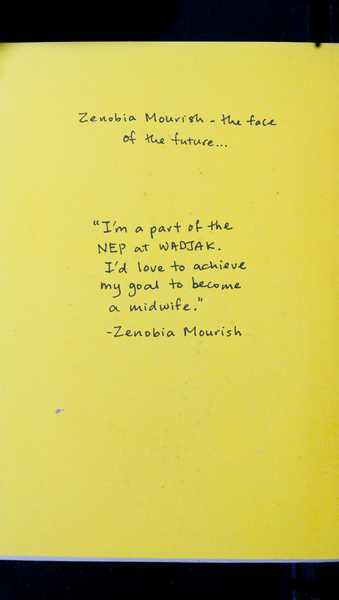 Zenobia Mourish - the face
of the future...
"I'm a part of the
NEP at WADJAK.
I'd love to achieve
my goal to become
a midwife."
-Zenobia Mourish